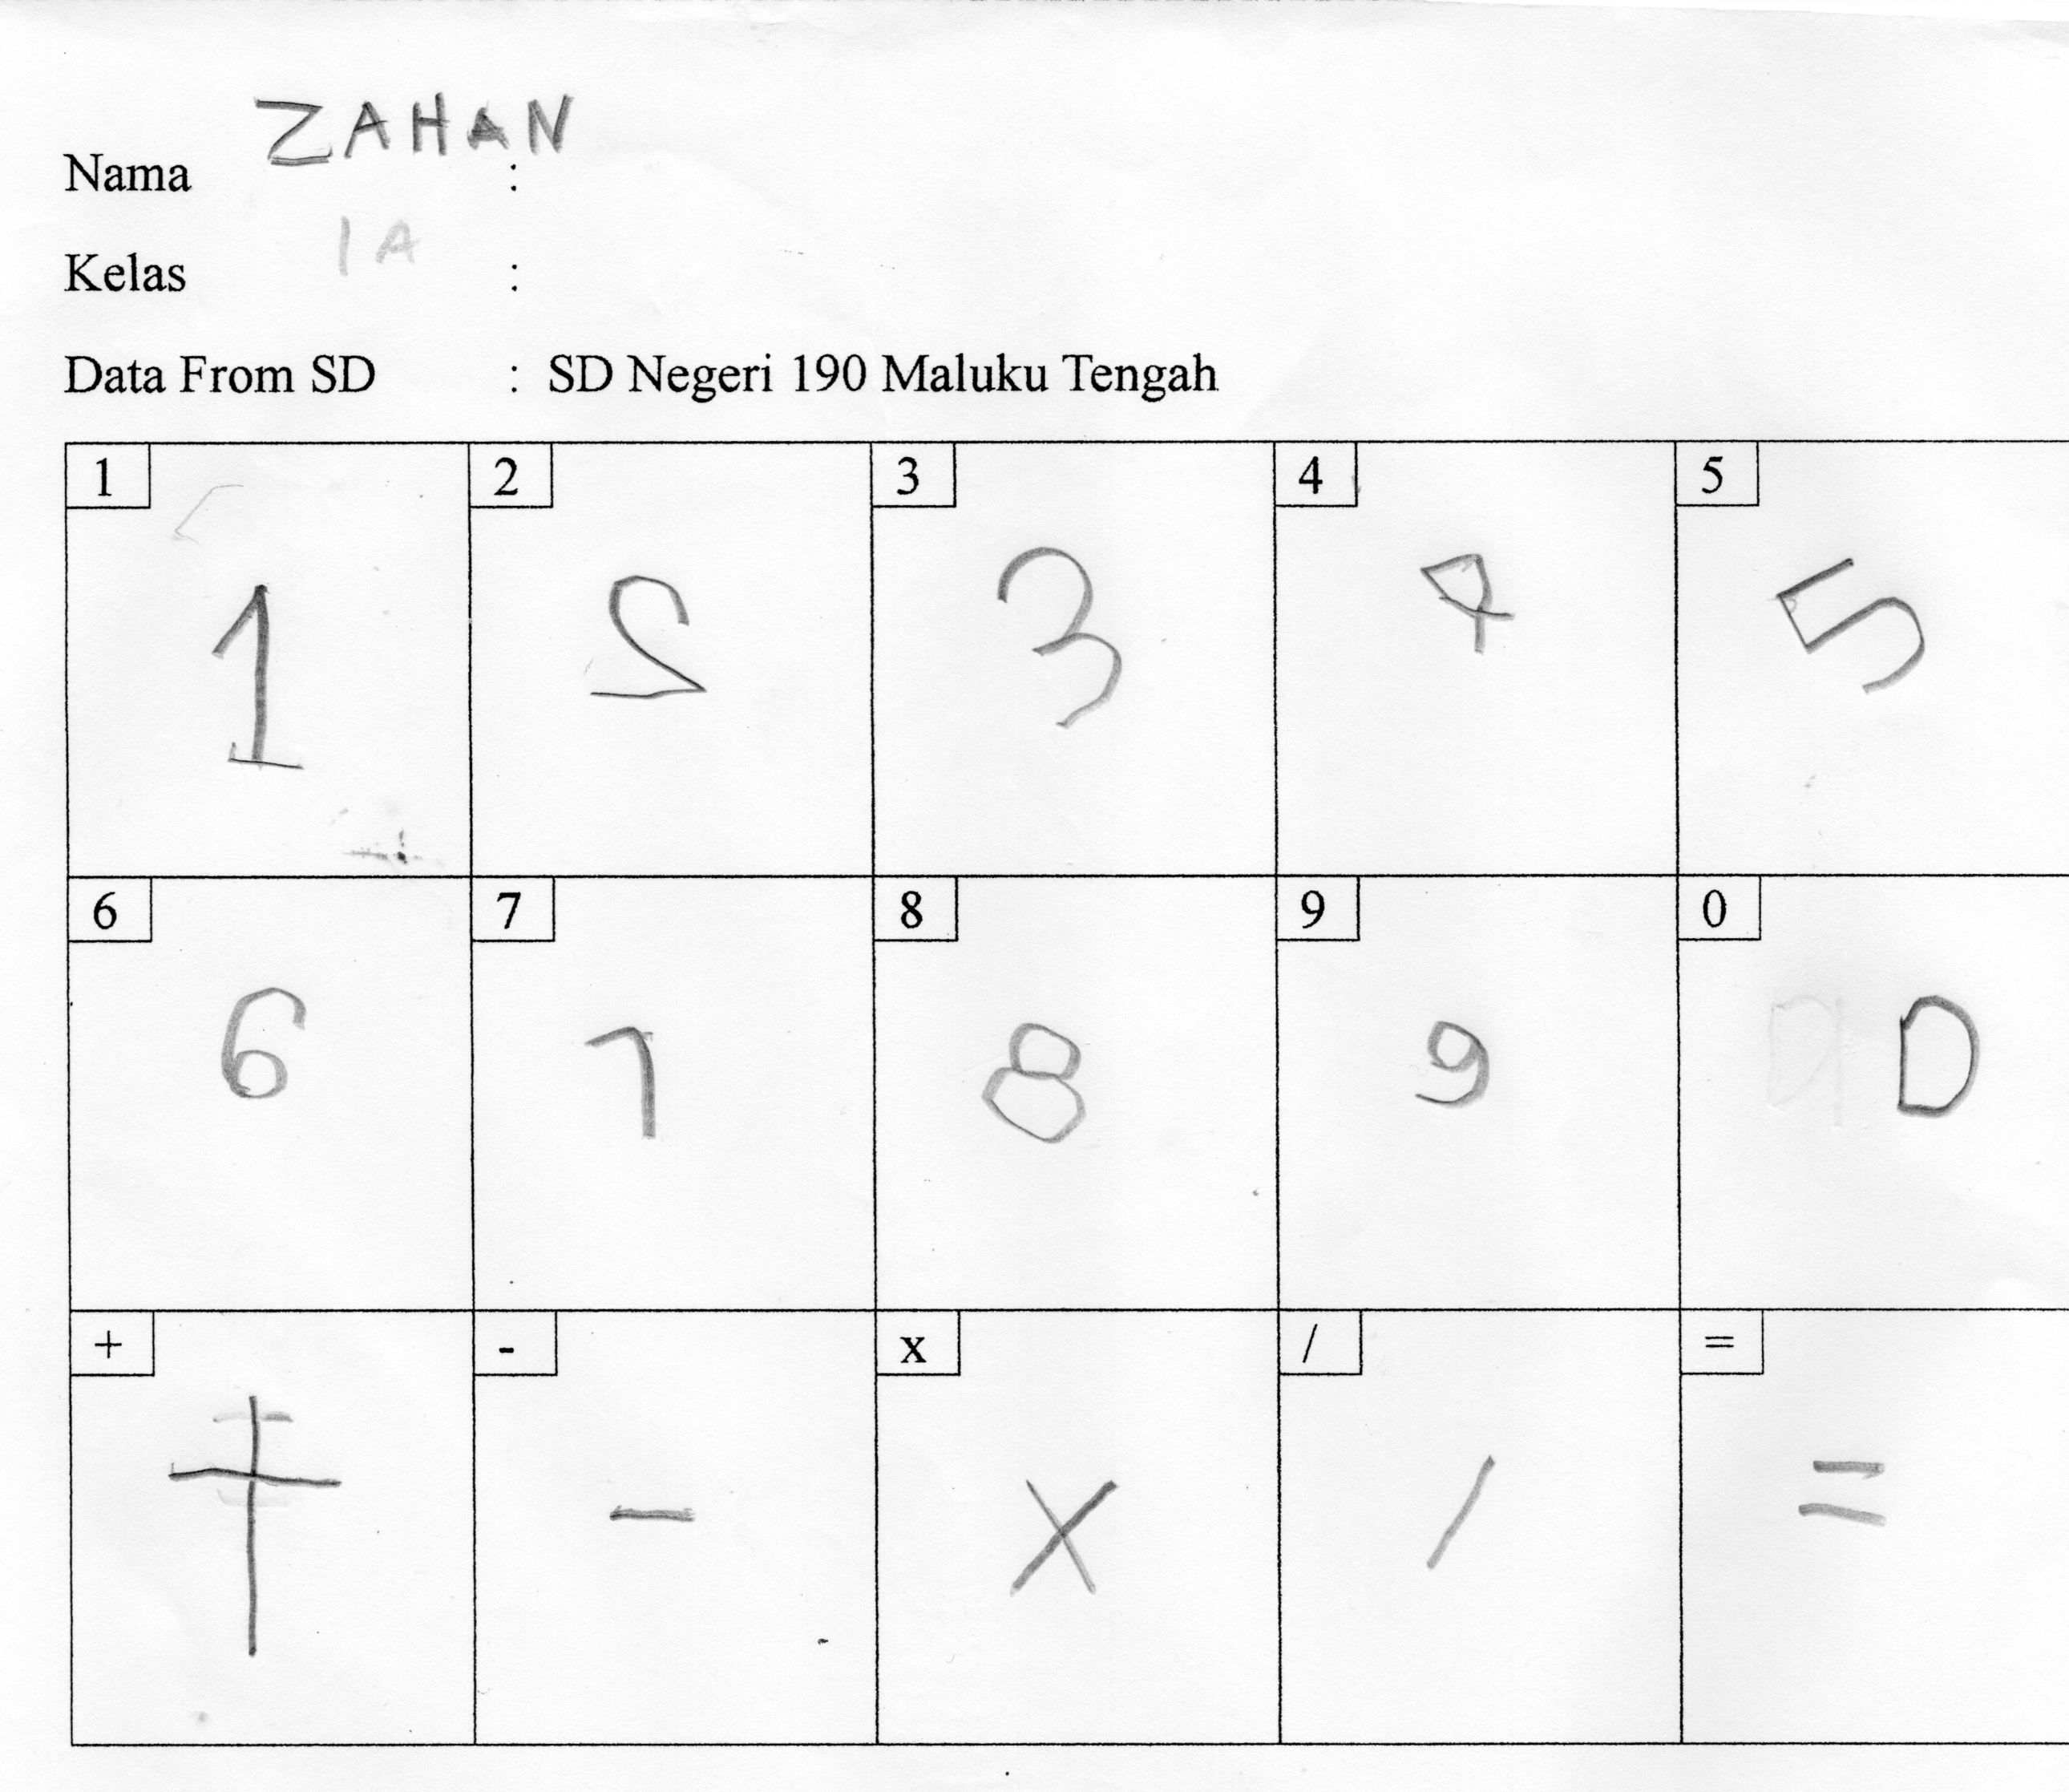 ZAHAN
Nama :
1A
Kelas :
Data From SD : SD Negeri 190 Maluku Tengah
1 2 3 4 5
1 2 3 4 5
6 7 8 9 0
6 7 8 9 0
+ - x / =
+ - x / =